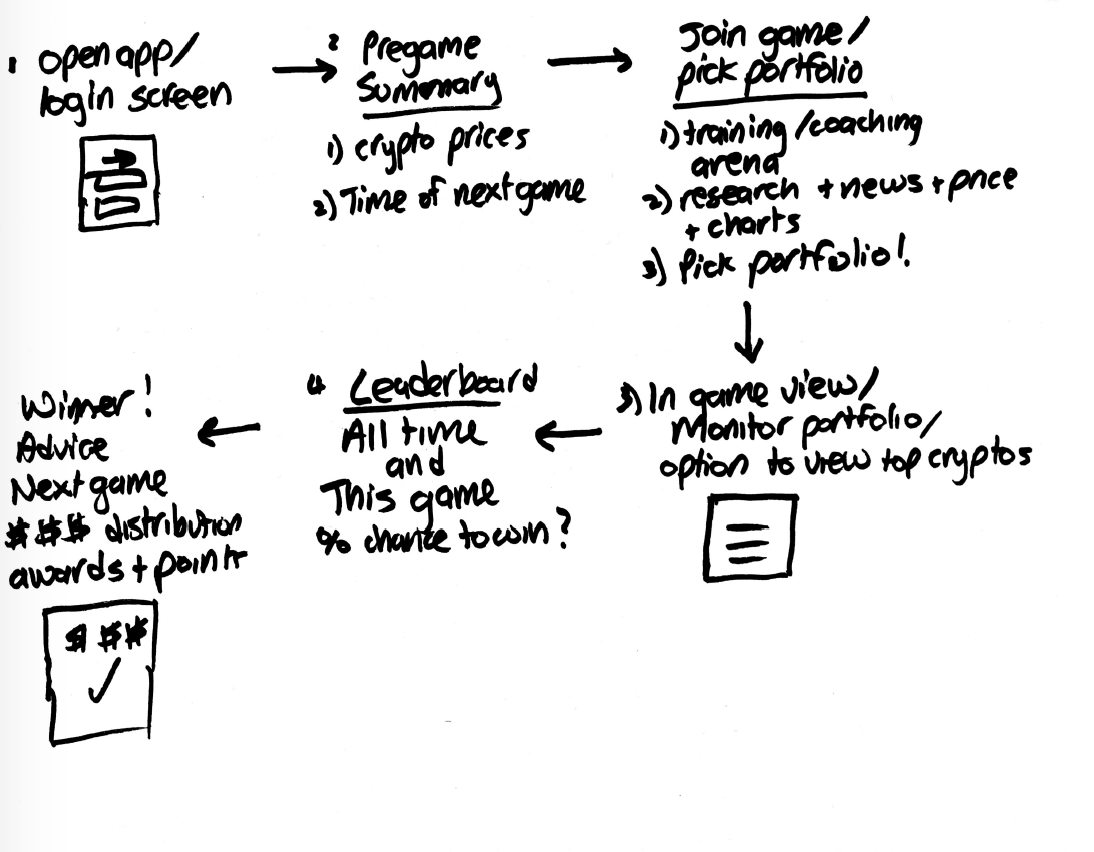 1 open app/
login screen
2 Pregame
Summary
1) crypto prices
2) Time of next game
Join game/
pick portfolio
1) training/coaching
arena
2) research + news + price
+ charts
3) Pick portfolio!
3) In game view/
Monitor portfolio/
option to view top cryptos
4 Leaderboard
All time
and
This game
% chance to win?
Winner!
Advice
Next game
$$$ distribution
awards + points
$$$